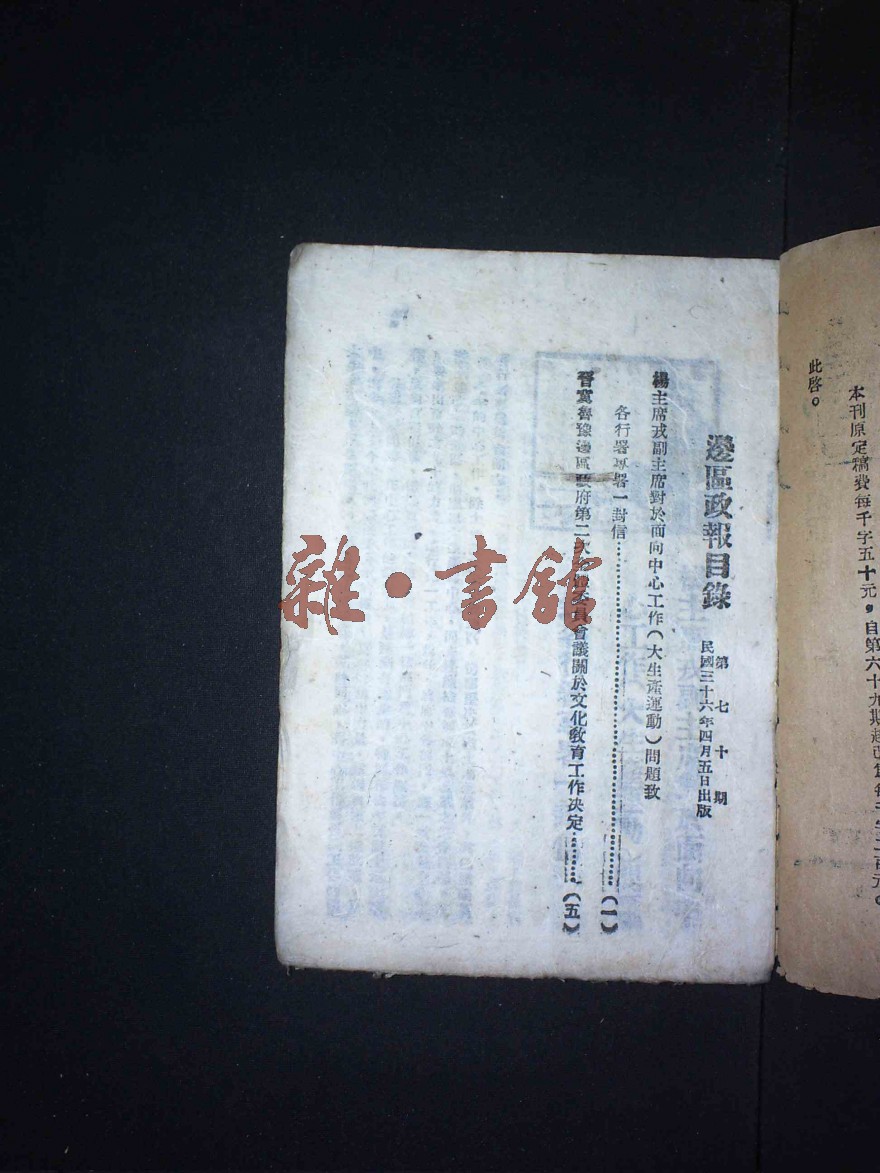 本刊原定稿費每千字五十元，自第六十九期起改爲每千字二百元。
此啓。
邊區政報目錄
第七十期
民國三十六年四月五日出版
楊主席戎副主席對於面向中心工作（大生產運動）問題致
各行署專署一封信……（一）
晉冀魯豫邊區政府第二次 委員會議關於文化教育工作決定……（五）
雜·書舘